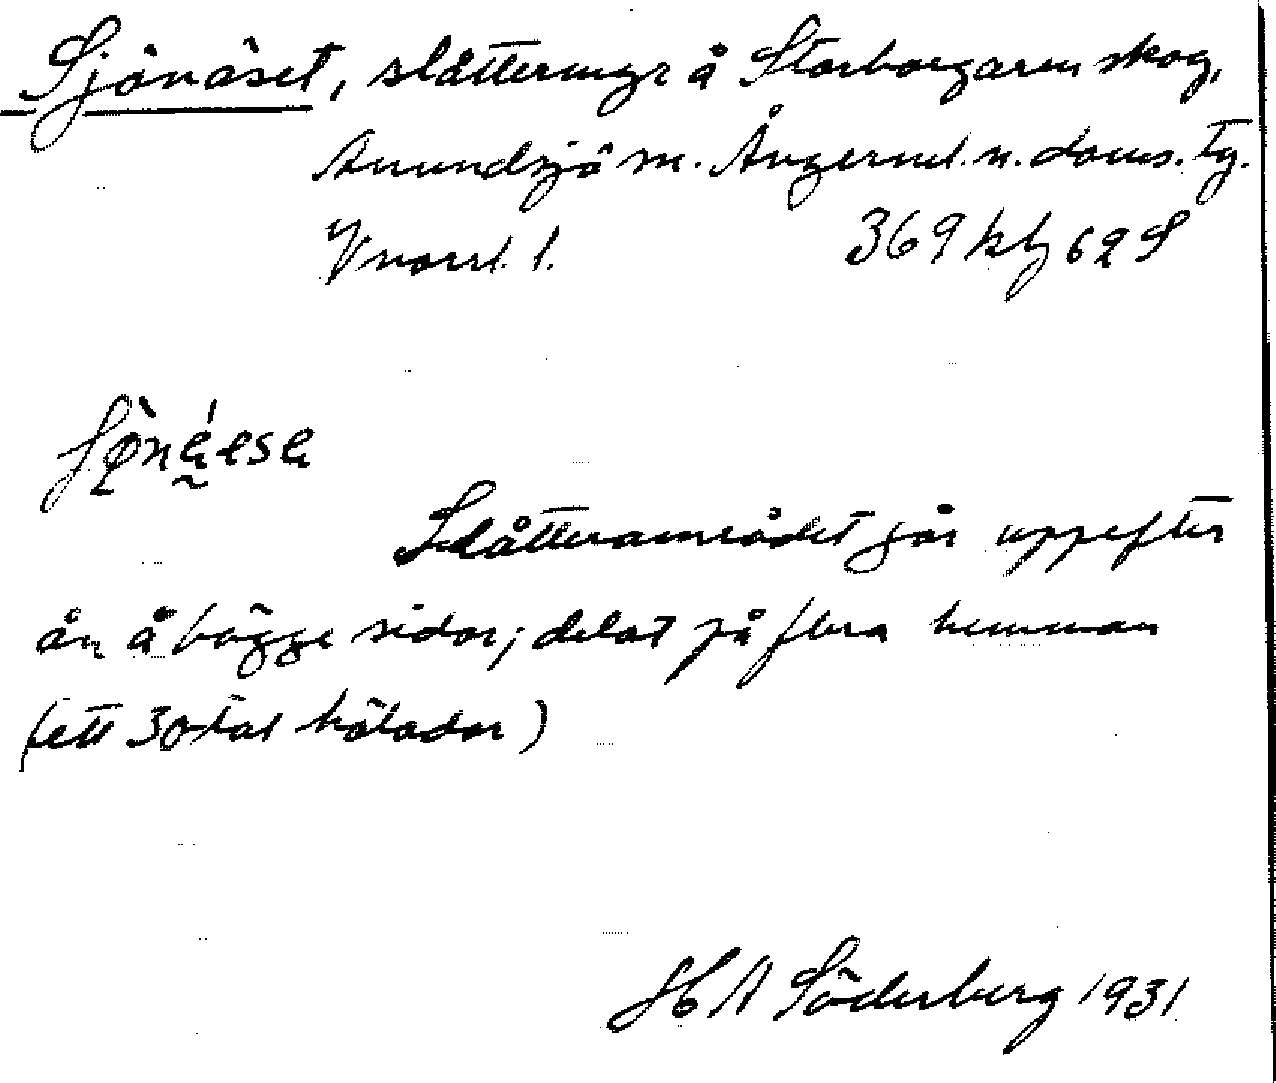 Sjönäset, slåtteringr å Storborgaren skog,
Anundsjö sn. Ångerml. n. doms. tg.
Vnorrl. l. 369 klz 62 S
Slåtterområdet går uppefter
ån å bägge sidor; delat på flera hemman
(ett 30-tal hölador)
H A Söderberg 1931